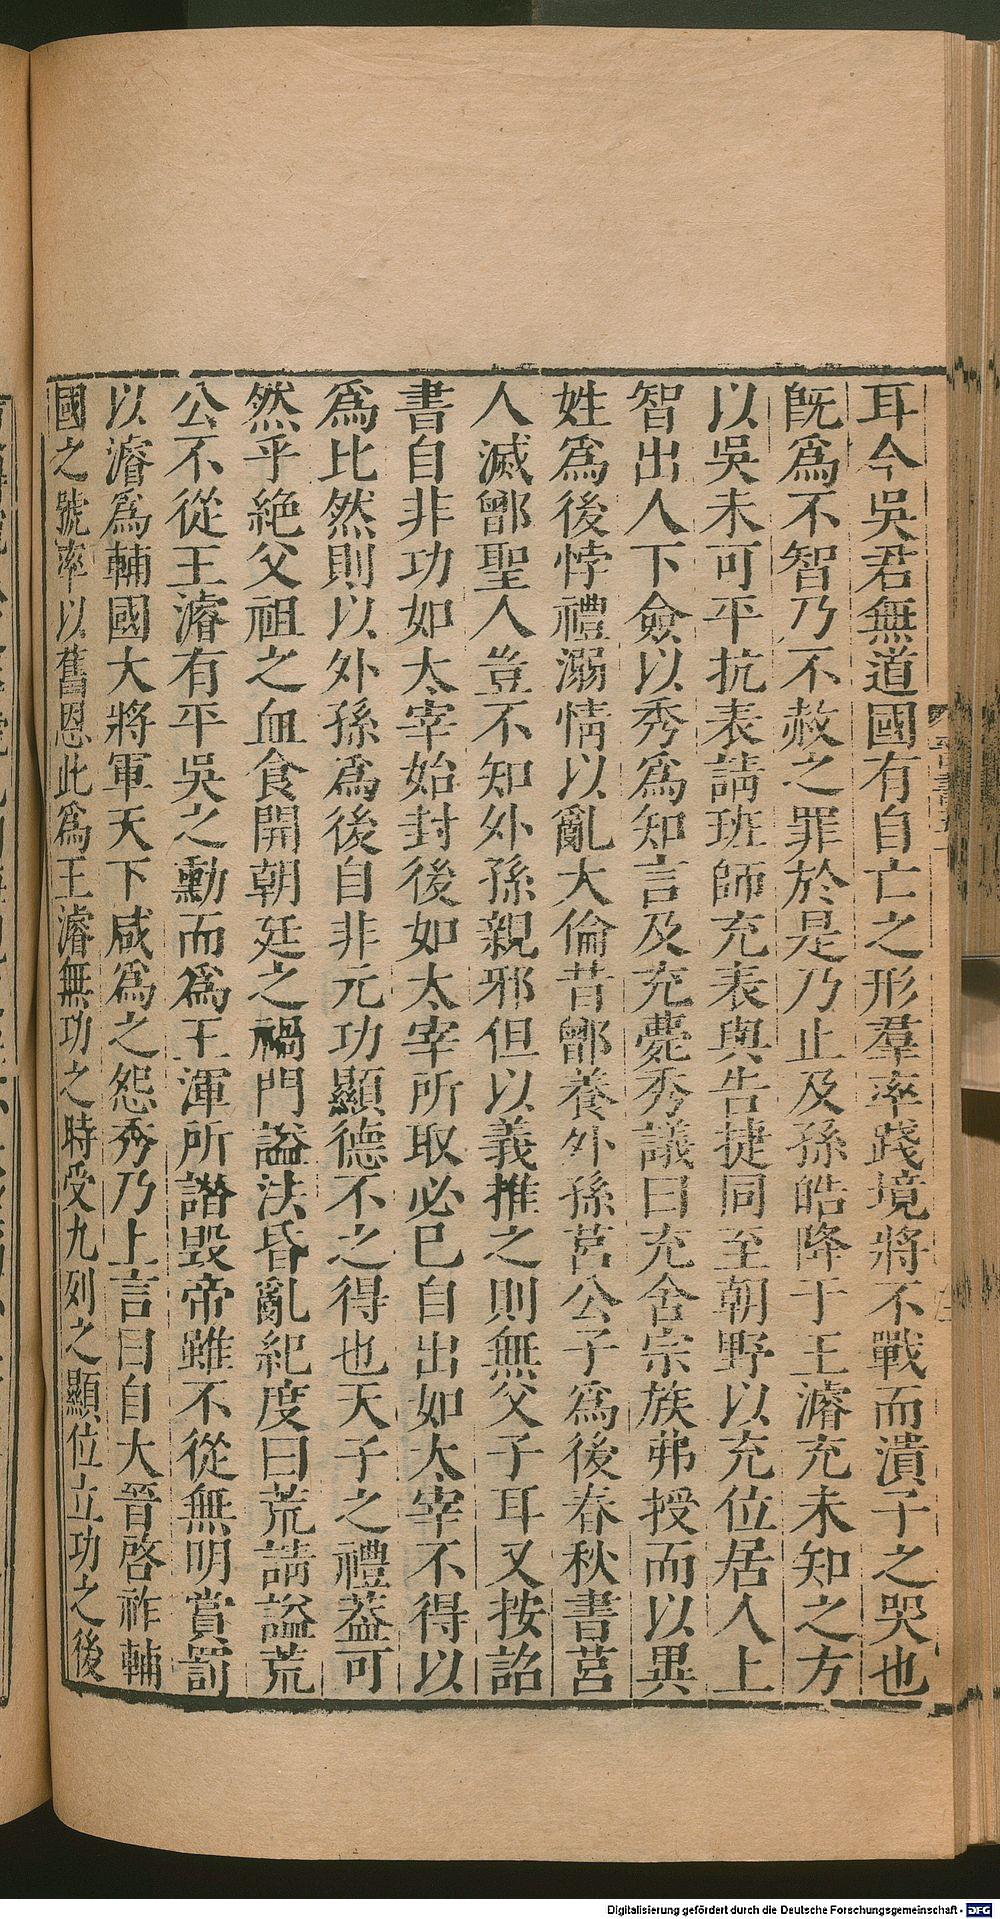 耳今吳君無道國有自亡之形羣率踐境將不戰而潰子之哭也
旣爲不智乃不赦之罪於是乃止及孫皓降于王濬充未知之方
以吳未可平抗表請班師充表與告捷同至朝野以充位居人上
智出人下僉以秀爲知言及充薨秀議曰充舍宗族弗授而以異
姓爲後悖禮溺情以亂大倫昔鄫養外孫莒公子爲後春秋書莒
人滅鄫聖人豈不知外孫親邪但以義推之則無父子耳又按詔
書自非功如太宰始封後如太宰所取必巳自出如太宰不得以
爲比然則以外孫爲後自非元功顯德不之得也天子之禮葢可
然乎絕父祖之血食開朝廷之禍門謚法昏亂紀度曰荒請謚荒
公不從王濬有平吳之勳而爲王渾所譖毀帝雖不從無明賞罰
以濬爲輔國大將軍天下咸爲之怨秀乃上言曰自大晉啓祚輔
國之號率以舊恩此爲王濬無功之時受九列之顯位立功之後
Digitalisierung gefördert durch die Deutsche Forschungsgemeinschaft - DFG